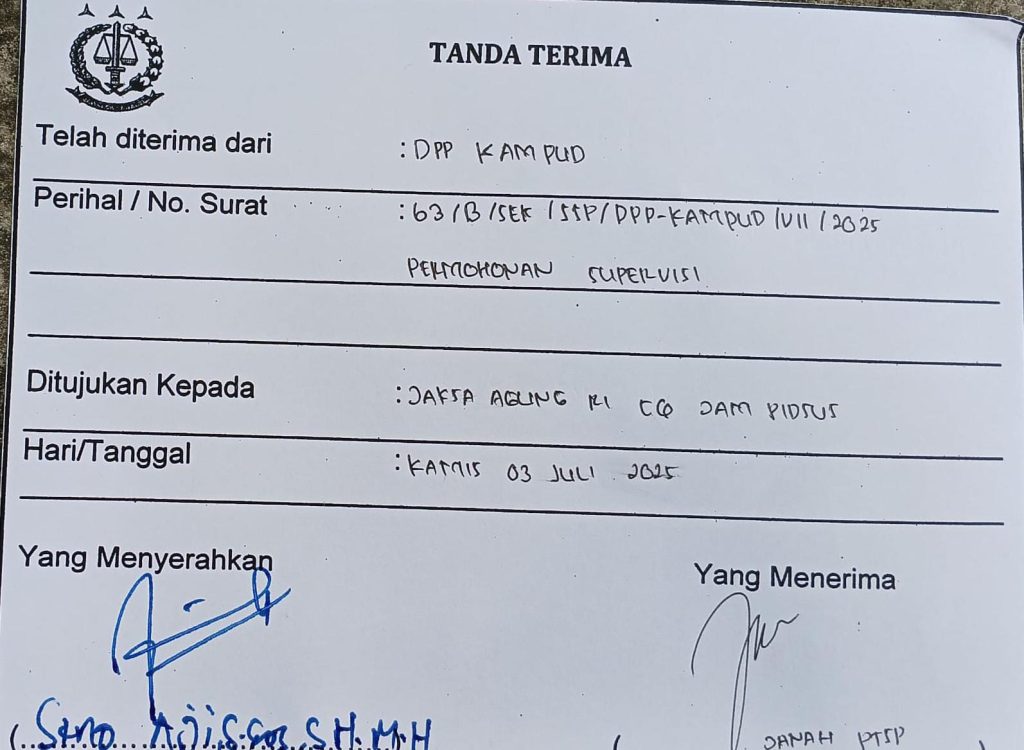 TANDA TERIMA
Telah diterima dari : DPP KAMPUD
Perihal / No. Surat : 63/B/SEK/SSP/DPP-KAMPUD/VII/2025
PERMOHONAN SUPERVISI
Ditujukan Kepada : JAKSA AGUNG RI CQ JAM PIDSUS
Hari/Tanggal : KAMIS 03 JULI 2025
Yang Menyerahkan Yang Menerima
(Seno Aji S.Sos S.H. M.H ( JANAH PTSP )